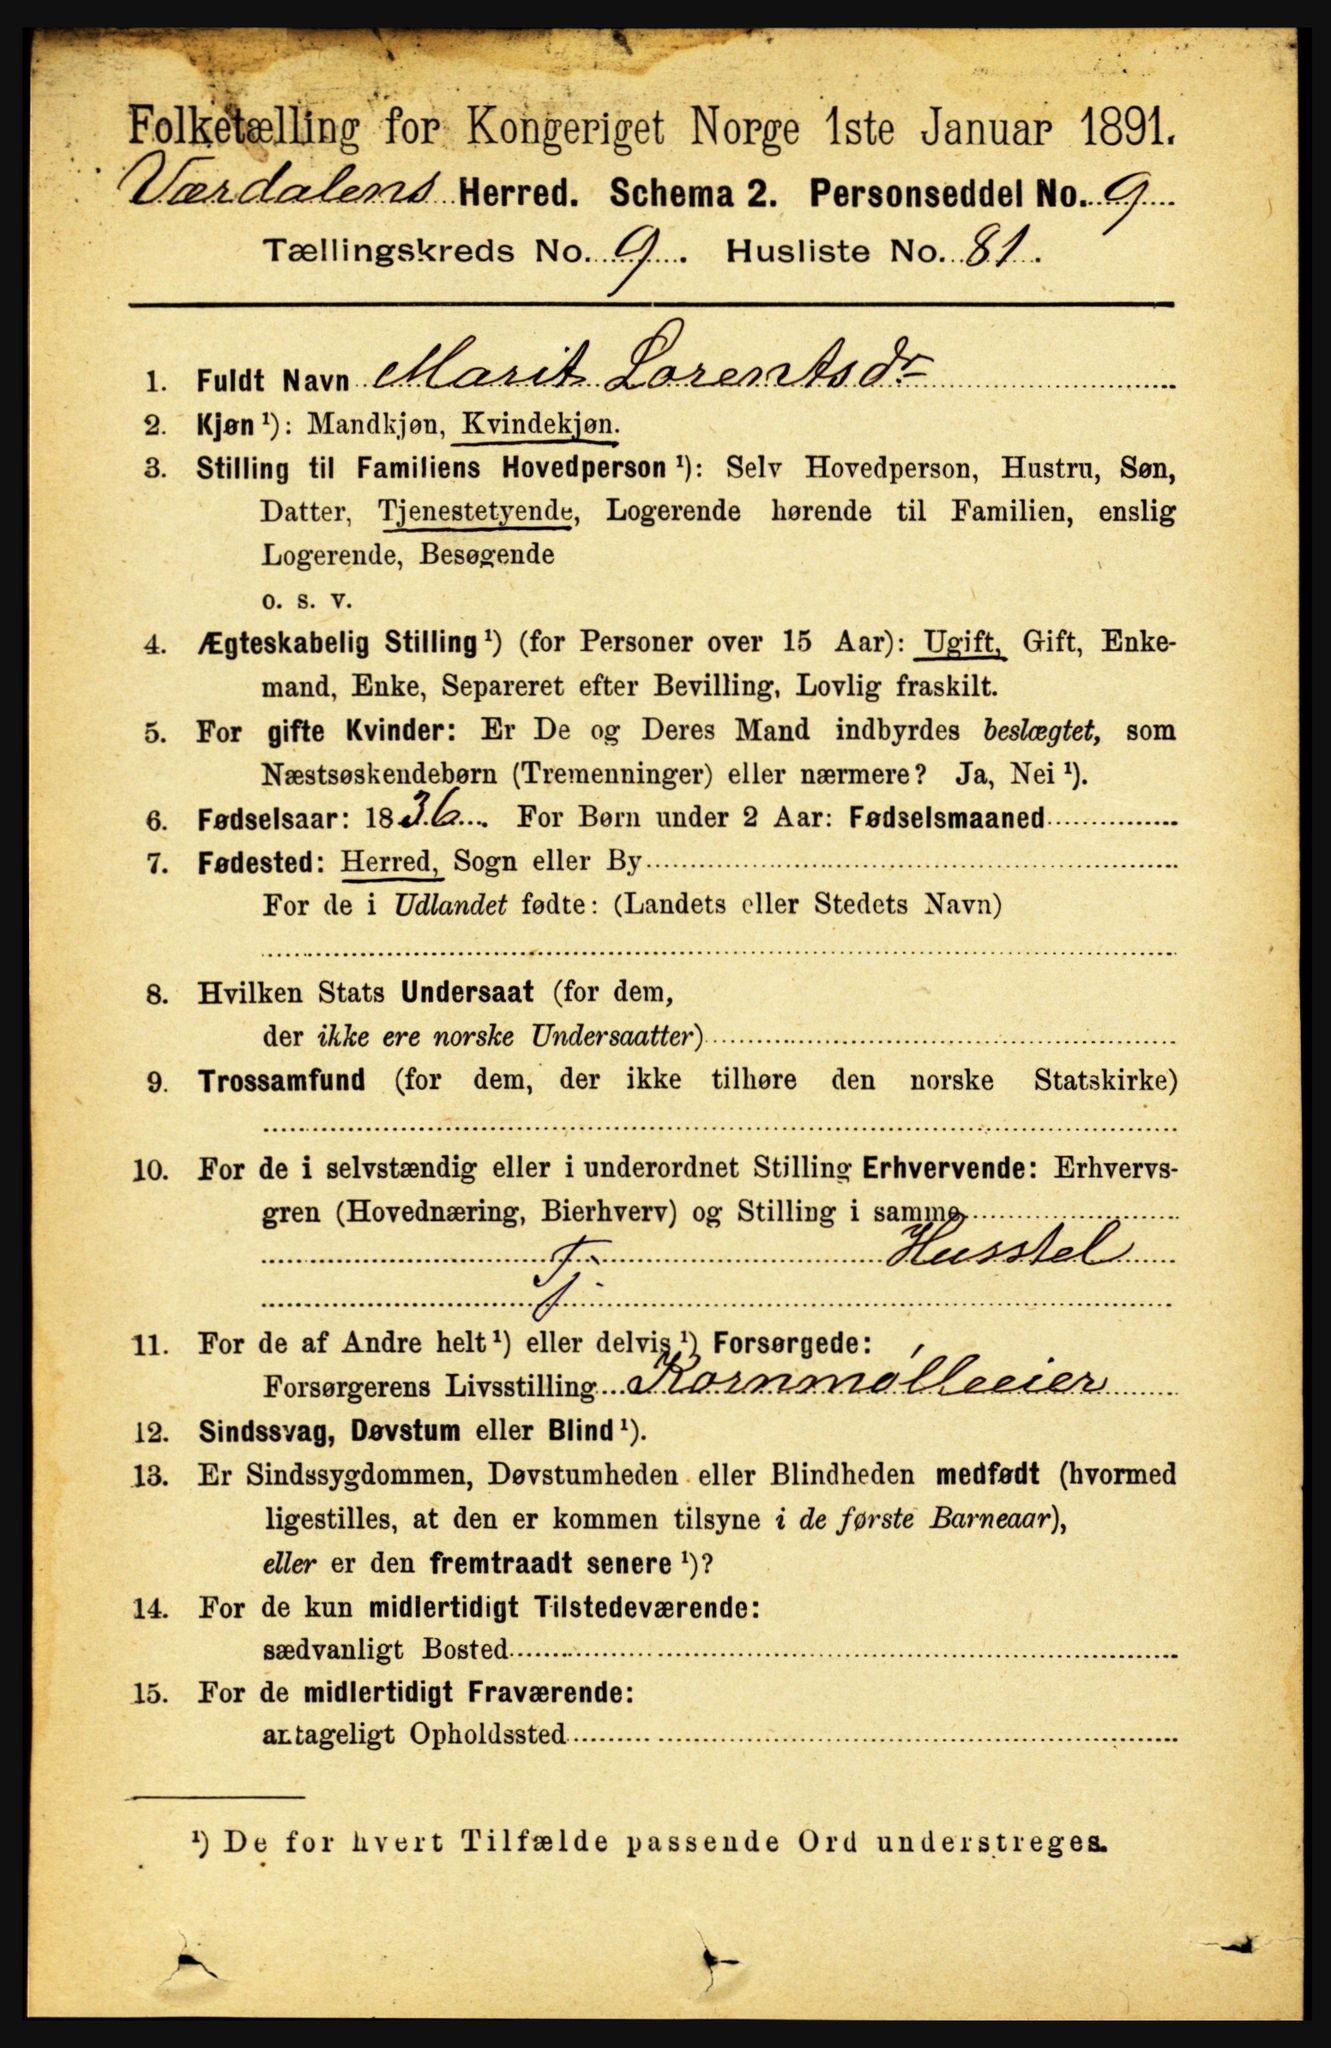 Folketælling for Kongeriget Norge 1ste Januar 1891.
Værdalens Herred. Schema 2. Personseddel No. 9
Tællingskreds No. 9. Husliste No. 81.
1. Fuldt Navn Marit Lorentsdr
2. Kjøn ¹): Mandkjøn, Kvindekjøn.
3. Stilling til Familiens Hovedperson ¹): Selv Hovedperson, Hustru, Søn,
Datter, Tjenestetyende, Logerende hørende til Familien, enslig
Logerende, Besøgende
o. s. v.
4. Ægteskabelig Stilling ¹) (for Personer over 15 Aar): Ugift, Gift, Enke-
mand, Enke, Separeret efter Bevilling, Lovlig fraskilt.
5. For gifte Kvinder: Er De og Deres Mand indbyrdes beslægtet, som
Næstsøskendebørn (Tremenninger) eller nærmere? Ja, Nei ¹).
6. Fødselsaar: 1836. For Børn under 2 Aar: Fødselsmaaned
7. Fødested: Herred, Sogn eller By
For de i Udlandet fødte: (Landets eller Stedets Navn)
8. Hvilken Stats Undersaat (for dem,
der ikke ere norske Undersaatter)
9. Trossamfund (for dem, der ikke tilhøre den norske Statskirke)
10. For de i selvstændig eller i underordnet Stilling Erhvervende: Erhvervs-
gren (Hovednæring, Bierhverv) og Stilling i samme
Tj. Husstel
11. For de af Andre helt ¹) eller delvis ¹) Forsørgede:
Forsørgerens Livsstilling Kornmølleeier
12. Sindssvag, Døvstum eller Blind ¹).
13. Er Sindssygdommen, Døvstumheden eller Blindheden medfødt (hvormed
ligestilles, at den er kommen tilsyne i de første Barneaar),
eller er den fremtraadt senere ¹)?
14. For de kun midlertidigt Tilstedeværende:
sædvanligt Bosted
15. For de midlertidigt Fraværende:
antageligt Opholdssted
¹) De for hvert Tilfælde passende Ord understreges.